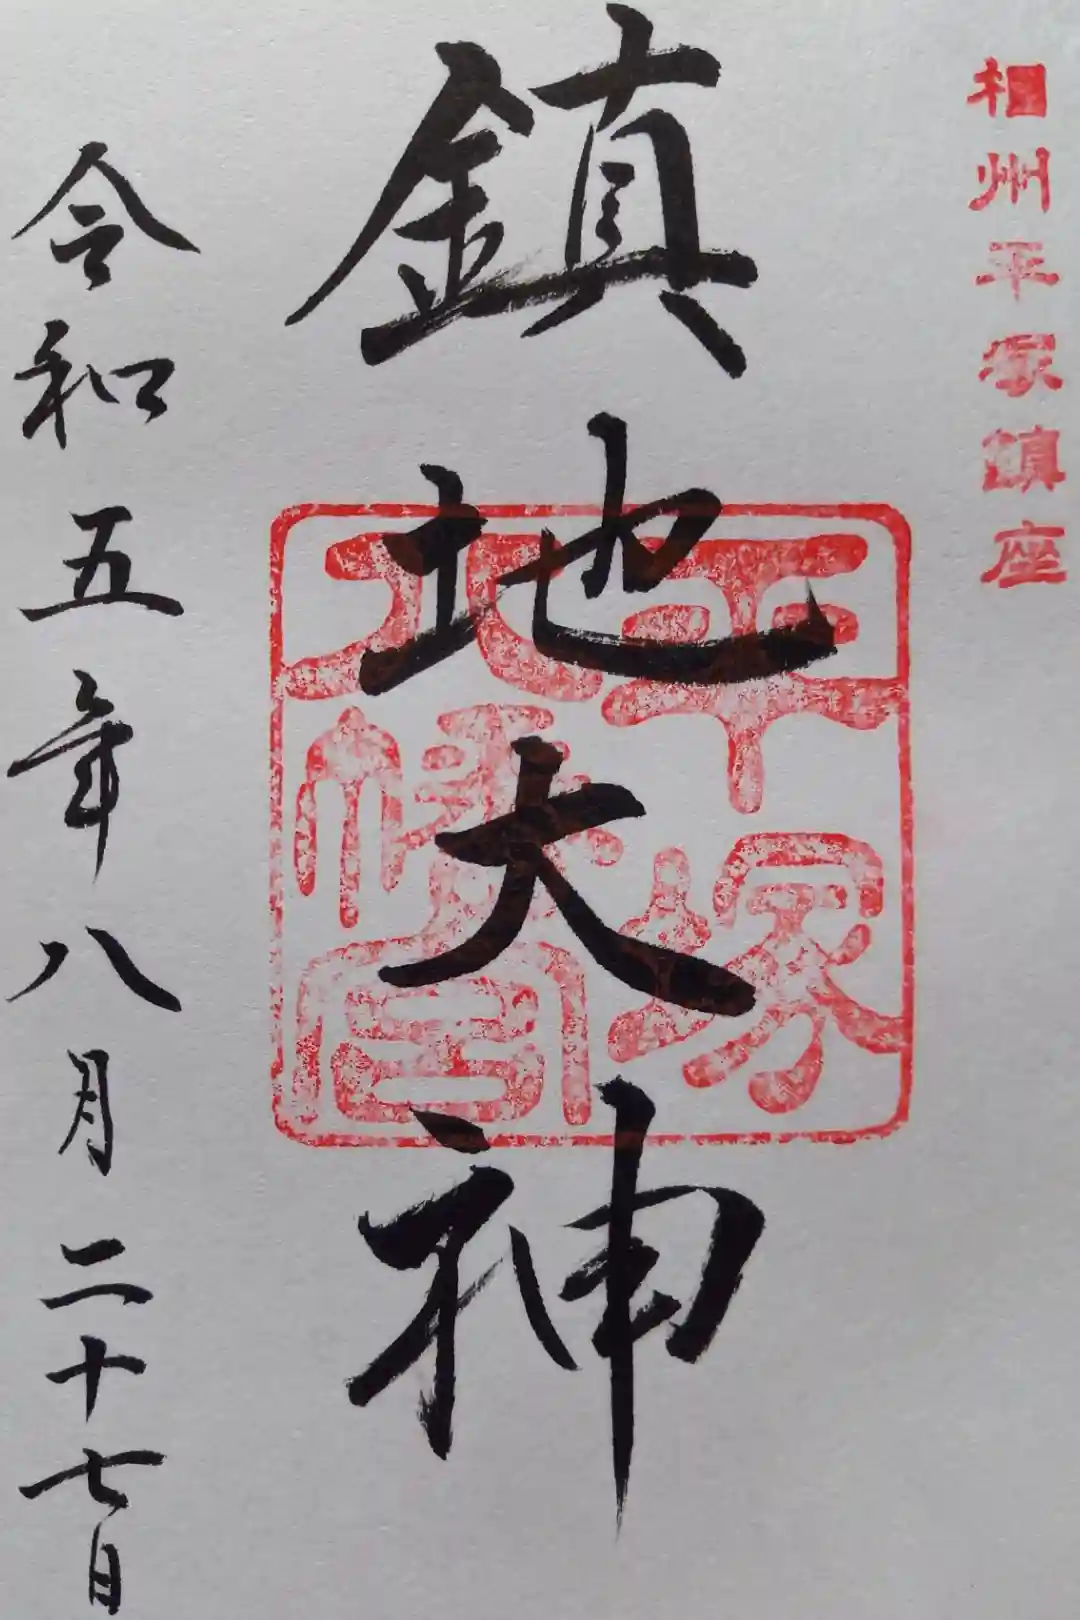 相州平塚鎮座
鎮地大神
平塚
八幡宮
令和五年八月二十七日